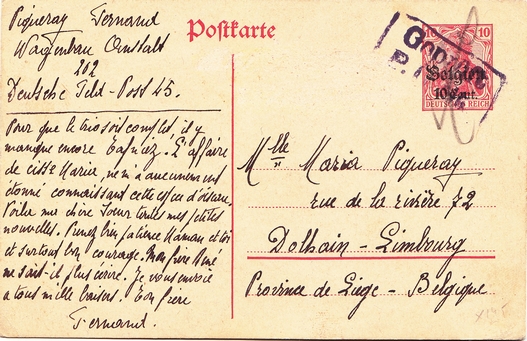 Piqueray Fernand
Wagenbau Anstalt
202
Deutsche Feld-Post 45.
Pour que le trio soit complet, il y
manque encore L'affaire
de cette Maria, ne m'a aucunement
étonné connaissant cette espèce d'oiseau.
Voilà ma chère Soeur toutes mes petites
nouvelles. Prenez bien patience Maman et toi
et surtout bon courage. Mon frère René
ne sait-il plus écrire. Je vous envoie
a tous mille baisers. Ton frère
Fernand.
Postkarte
Geprüft
P.
10 10
Belgien
10 Cent.
DEUTSCHES REICH
Mlle Maria Piqueray
rue de la rivière 72
Dolhain - Limbourg
Province de Liège - Belgique